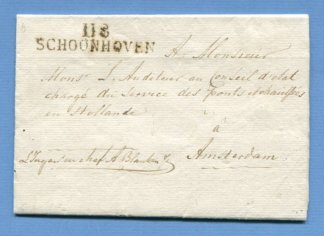 118
SCHOONHOVEN
A Monsieur
Mons L'Auditeur au Conseil d'état
chargé du Service des Ponts et chaussées
en Hollande
à
L'Ingenieur en chef A Blanken
Amsterdam